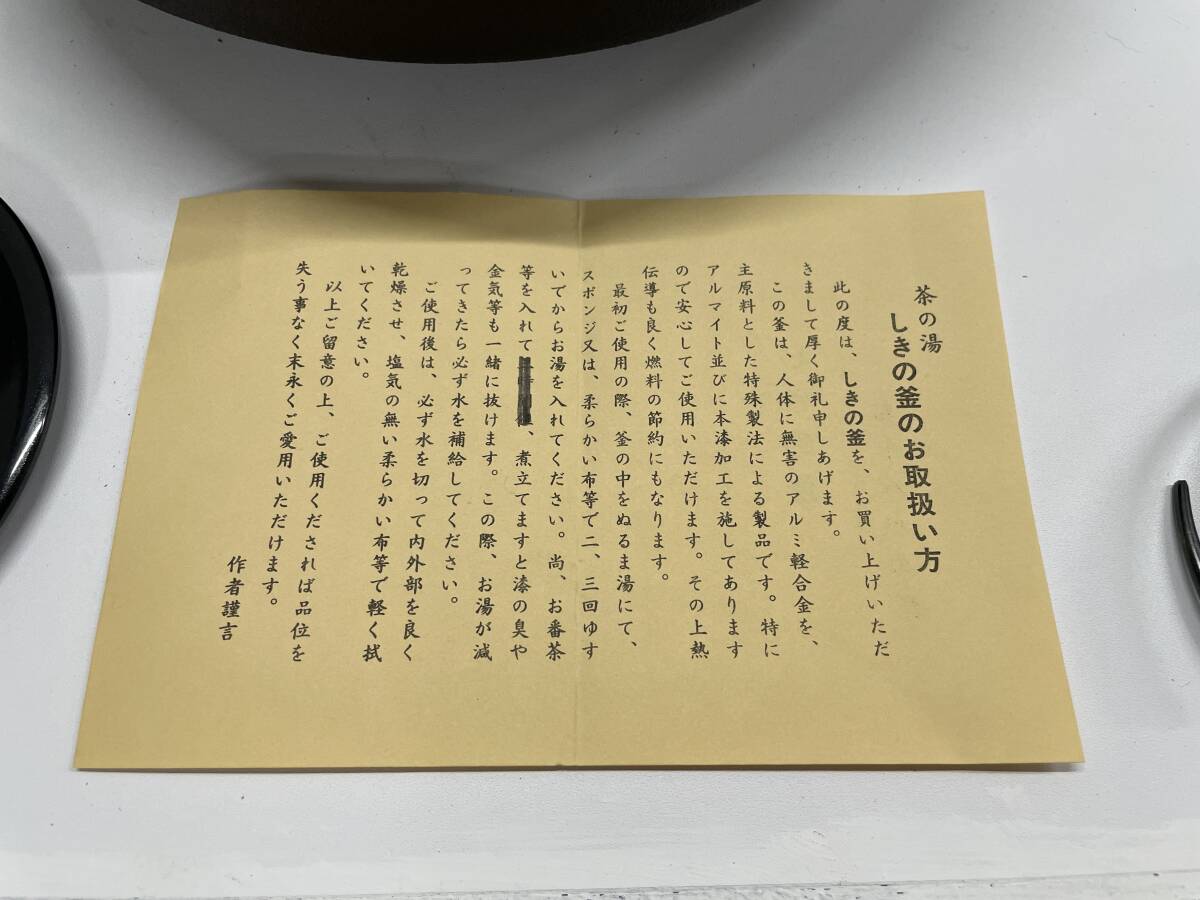 茶の湯
しきの釜のお取扱い方
此の度は、しきの釜を、お買い上げいただ
きまして厚く御礼申しあげます。
この釜は、人体に無害のアルミ軽合金を、
主原料とした特殊製法による製品です。特に
アルマイト並びに本漆加工を施してあります
ので安心してご使用いただけます。その上熱
伝導も良く燃料の節約にもなります。
最初ご使用の際、釜の中をぬるま湯にて、
スポンジ又は、柔らかい布等で二、三回ゆす
いでからお湯を入れてください。尚、お番茶
等を入れて、煮立てますと漆の臭や
金気等も一緒に抜けます。この際、お湯が減
ってきたら必ず水を補給してください。
ご使用後は、必ず水を切って内外部を良く
乾燥させ、塩気の無い柔らかい布等で軽く拭
いてください。
以上ご留意の上、ご使用くだされば品位を
失う事なく末永くご愛用いただけます。
作者謹言